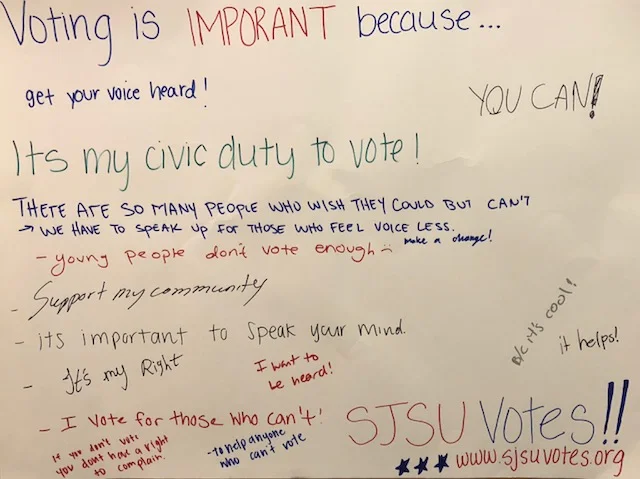 Voting is IMPORANT because...
get your voice heard!
YOU CAN!
Its my civic duty to vote!
THERE ARE SO MANY PEOPLE WHO WISH THEY COULD BUT CAN'T
→ WE HAVE TO SPEAK UP FOR THOSE WHO FEEL VOICE LESS.
make a change!
- young people don't vote enough :(
- Support my community
- its important to speak your mind.
B/c it's cool!
it helps!
- It's my Right
I want to
be heard!
- I vote for those who can't!
If you don't vote
you dont have a right
to complain.
- to help anyone
who can't vote
SJSU Votes!!
★★★ www.sjsuvotes.org